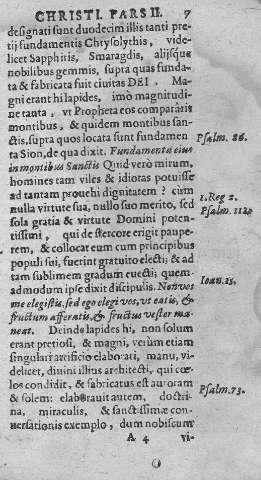 CHRISTI. PARS II. 7
designati sunt duodecim illis tanti pre-
tij fundamentis Chrysolythis, vide-
licet Sapphiris, Smaragdis, alijsque
nobilibus gemmis, supra quas funda-
ta & fabricata fuit ciuitas DEI. Ma-
gni erant hi lapides, imò magnitudi-
ne tanta, vt Propheta eos comparâtis
montibus, & quidem montibus san-
ctis, supra quos locata sunt fundamen-
ta Sion, de qua dixit. Fundamenta eius
in montibus Sanctis Quid verò mirum,
homines tam viles & idiotas potuisse
ad tantam prouehi dignitatem? cùm
nulla virtute sua, nullo suo merito, sed
sola gratia & virtute Domini poten-
tissimi, qui de stercore erigit paupe-
rem, & collocat eum cum principibus
populi sui, fuerint gratuito electi; & ad
tam sublimem gradum euecti; quem-
admodum ipse dixit discipulis. Non vos
me elegistis, sed ego elegi vos, vt eatis, &
fructum afferatis, & fructus vester ma-
neat. Deinde lapides hi, non solum
erant pretiosi, & magni, verùm etiam
singulari artificio elaborati, manu, vi-
delicet, diuini illius architecti, qui cœ-
los condidit, & fabricatus est auroram
& solem: elaborauit autem, doctri-
na, miraculis, & sanctissimæ con-
uersationis exemplo, dum nobiscum
A 4 vi-
Psalm. 86.
1. Reg 2.
Psalm. 112.
Ioan. 15.
Psalm. 73.